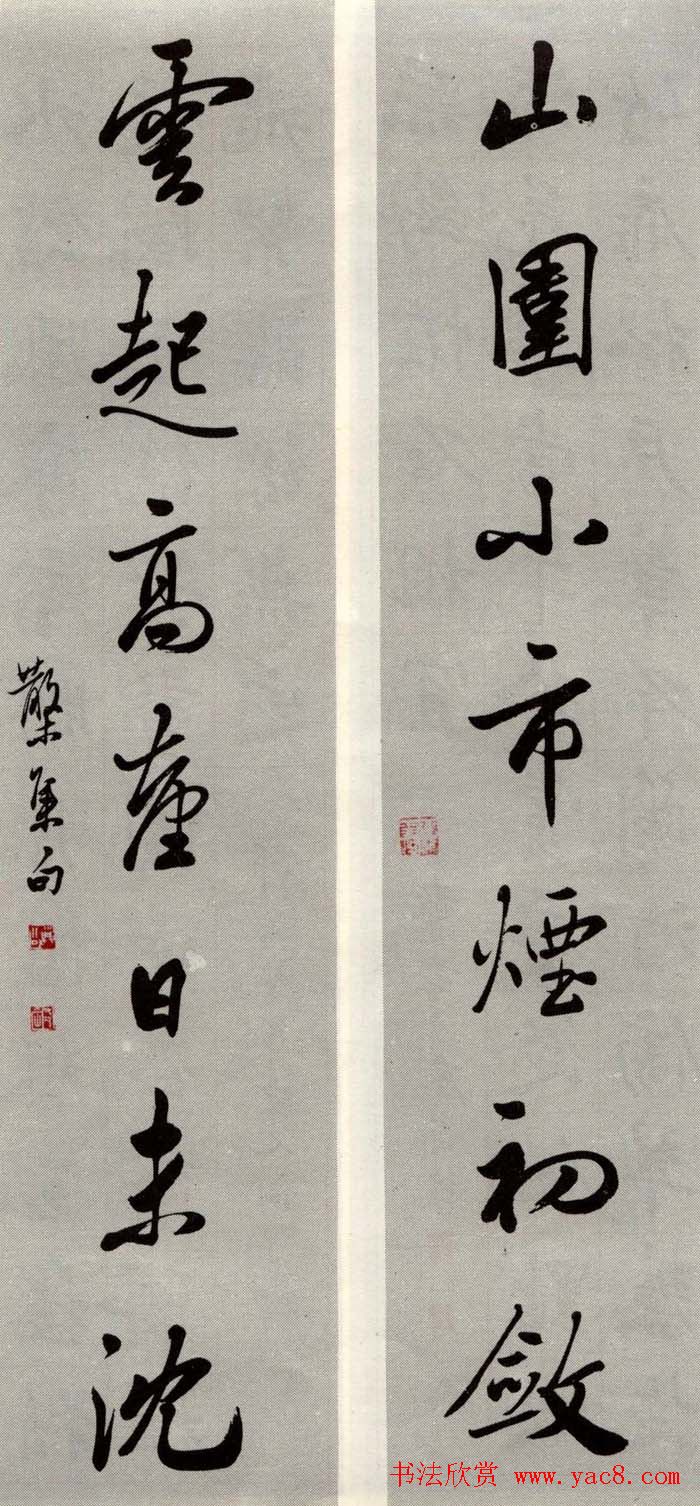 山圍小市煙初斂
雲起高日未沈
集句
书法欣赏 www.yac8.com